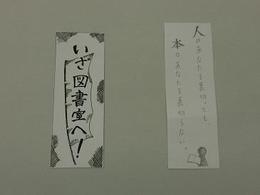 いざ図書室へ!
人があなたを裏切っても、
本はあなたを裏切らない。